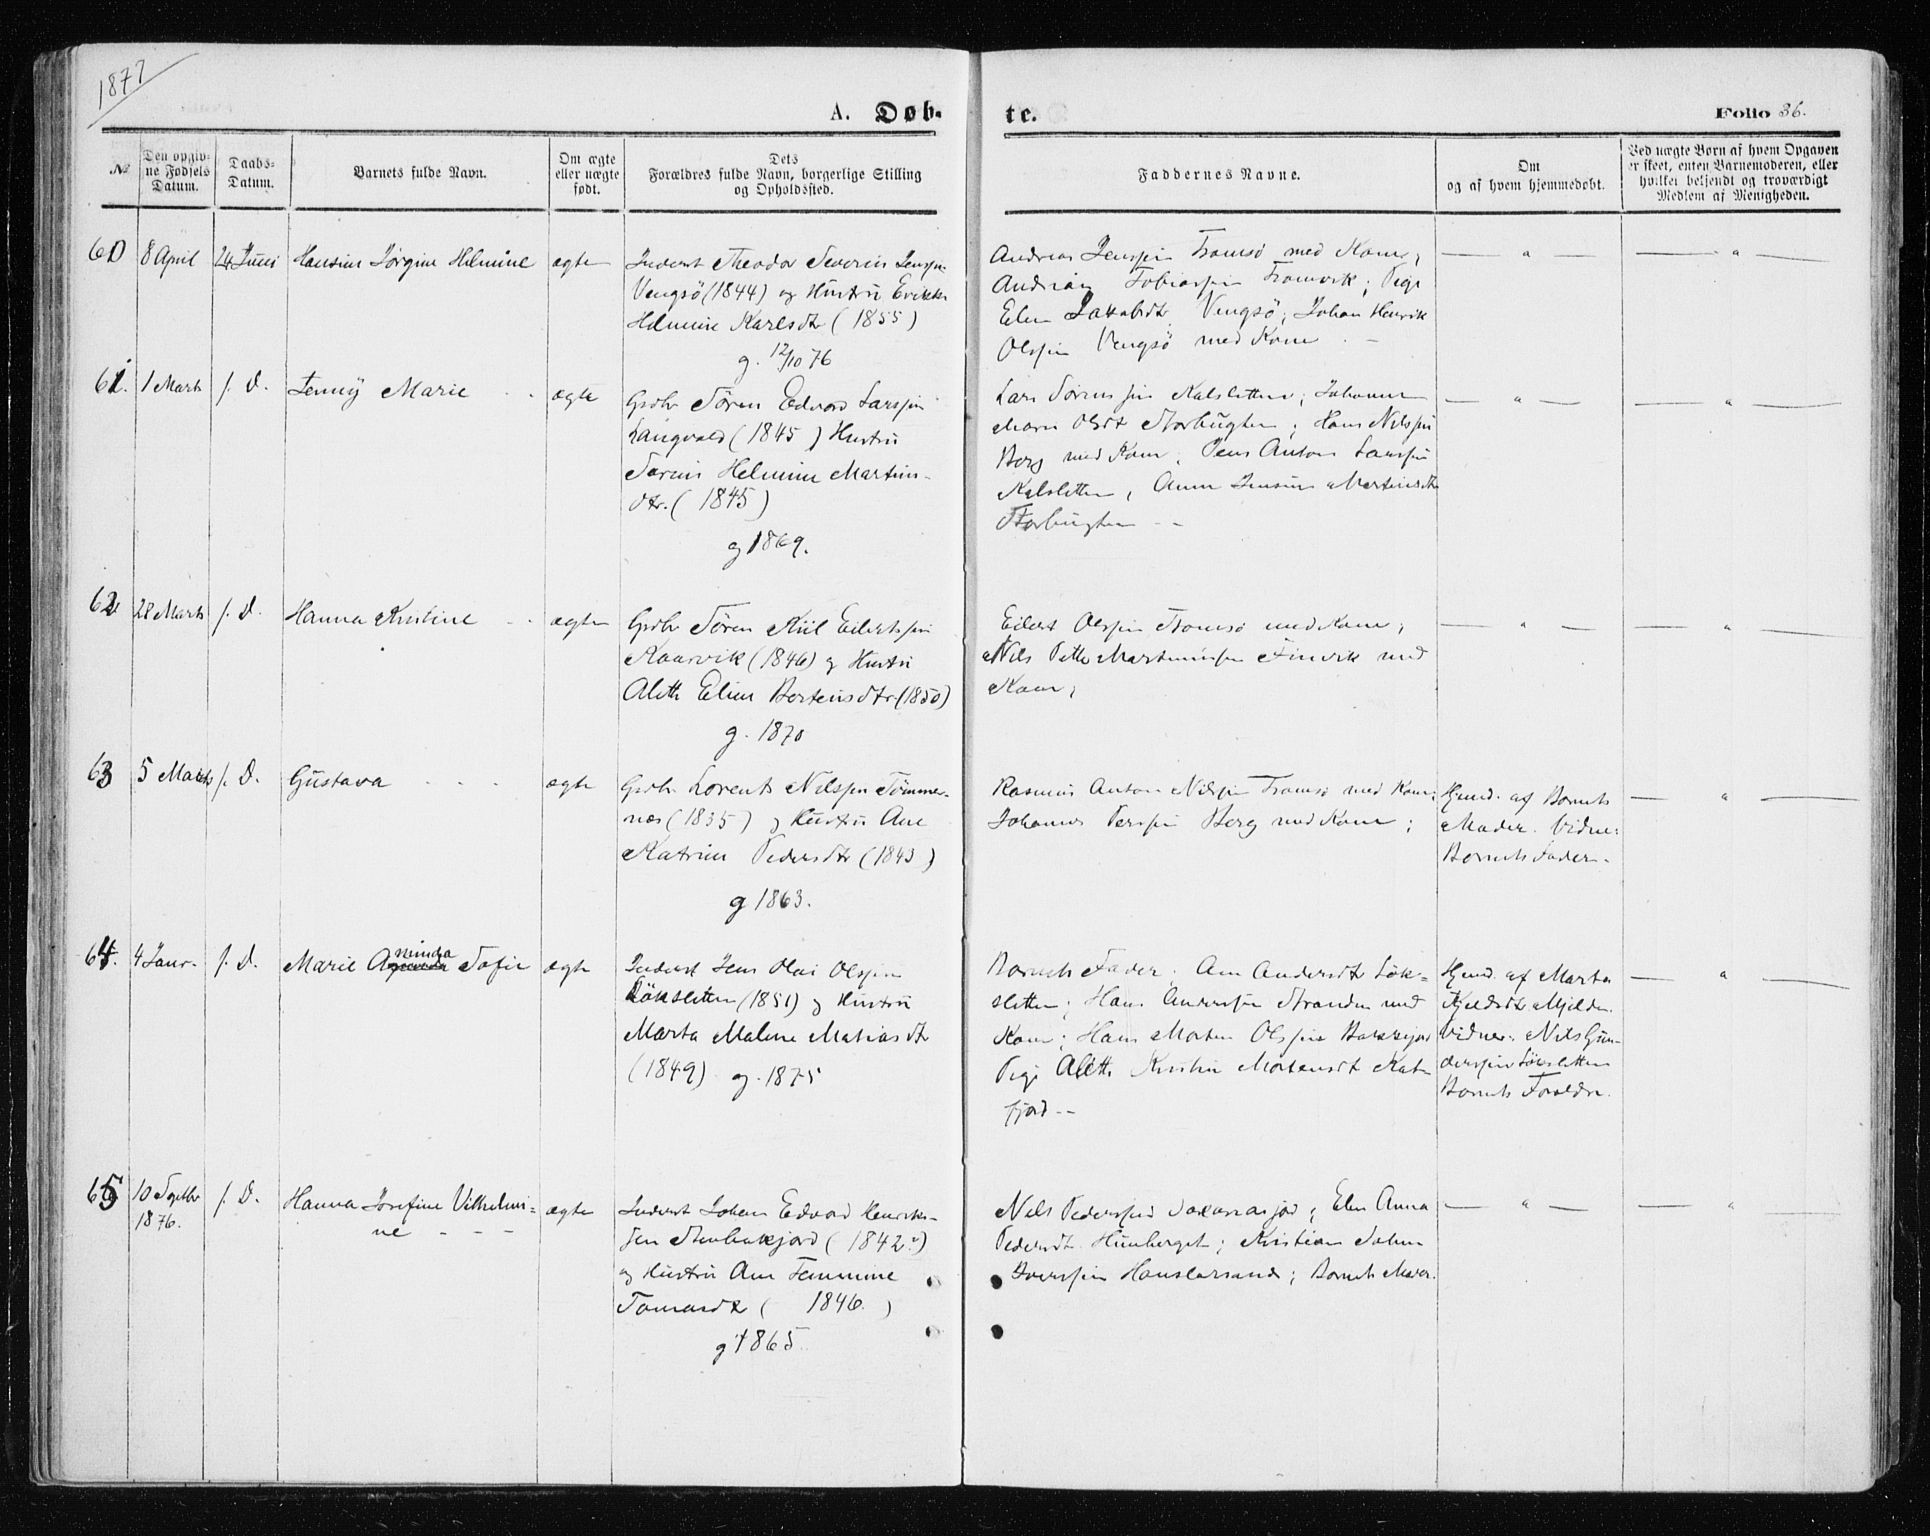 1877
A. Døb-
te.
Folio 36.
№
Den opgiv-
ne Fødsels
Datum.
Daabs-
Datum.
Barnets fulde Navn.
Om ægte
eller uægte
født.
Dets
Forældres fulde Navn, borgerlige Stilling
og Opholdssted.
Faddernes Navne.
Om
og af hvem hjemmedøbt.
Ved uægte Børn af hvem Opgaven
er skeet, enten Barnemoderen, eller
hvilket bekjendt og troværdigt
Medlem af Menigheden.
60 8 April 24 Juni Hansine Jørgine Helmine ægte
Inderst Theodor Severin Jensen
Vengsö (1844) og Hustru Erikke
Helmine Karlsdtr (1855)
g. 12/10 76
Andreas Jenssen Tromsö med Kone;
Andrias Tobiassen Tromvik; Pige
Elen Jakobsdt Vengsö; Johan Henrik
Olssen Vengsö med Kone
61. 1 Marts s. D. Jenny Marie ægte
Grdbr Sören Edvard Larssen
Langvald (1845) Hustru
Sørine Helmine Martins-
dtr. (1845)
g 1869.
Lars Sørenssen Kalsletten; Johanne
Marie Olsdt Storbugten; Hans Nilssen
Berg med Kone; Jens Anton Larssen
Kalsletten, Anne Jensine Martinsdt
Storbugten
62 28 Marts s. D. Hanna Kristine ægte
Grdbr Sören Kiil Eilertssen
Kaarvik (1846) og Hustru
Aleth Eline Bertensdtr (1850)
g. 1870
Eilert Olssen Tromsö med Kone;
Nils Petter Martinussen Finvik med
Kone;
63 5 Marts s. D. Gustava ægte
Grdbr Lorents Nilssen Tömmer-
næs (1835) og Hustru Ane
Katrine Pedersdtr (1843)
g 1863.
Rasmus Anton Nilssen Tromsö med Kone;
Johannes Perssen Berg med Kone;
Hjemd. af Barnets
Moder. Vidne:
Barnets Fader.
64. 4 Janr. s. D. Marie Aminda Sofie ægte
Inderst Jens Olai Olssen
Löksletten (1851) og Hustru
Marta Malene Matiasdt
(1849) g. 1875
Barnets Fader; Ane Andersdt Lök-
sletten; Hans Anderssen Stranden med
Kone; Hans Morten Olssen
Pige Aleth Kristine Mortensdt Kat-
fjord
Hjemd. af Marta
Kjeldsdt Mjelde.
Vidner: Nils Gun-
derssen Löksletten
Barnets Forældre.
65 10 Septbr
1876. s. D. Hanna Josefine Vilhelmi-
ne ægte
Inderst Johan Edvard Henriks-
sen (1842)
og Hustru Ane Jemmine
Tomasdt (1846.)
g 1865.
Nils Pederssen; Elen Anna
Pedersdt; Kristian Johan
Iverssen; Barnets Moder.